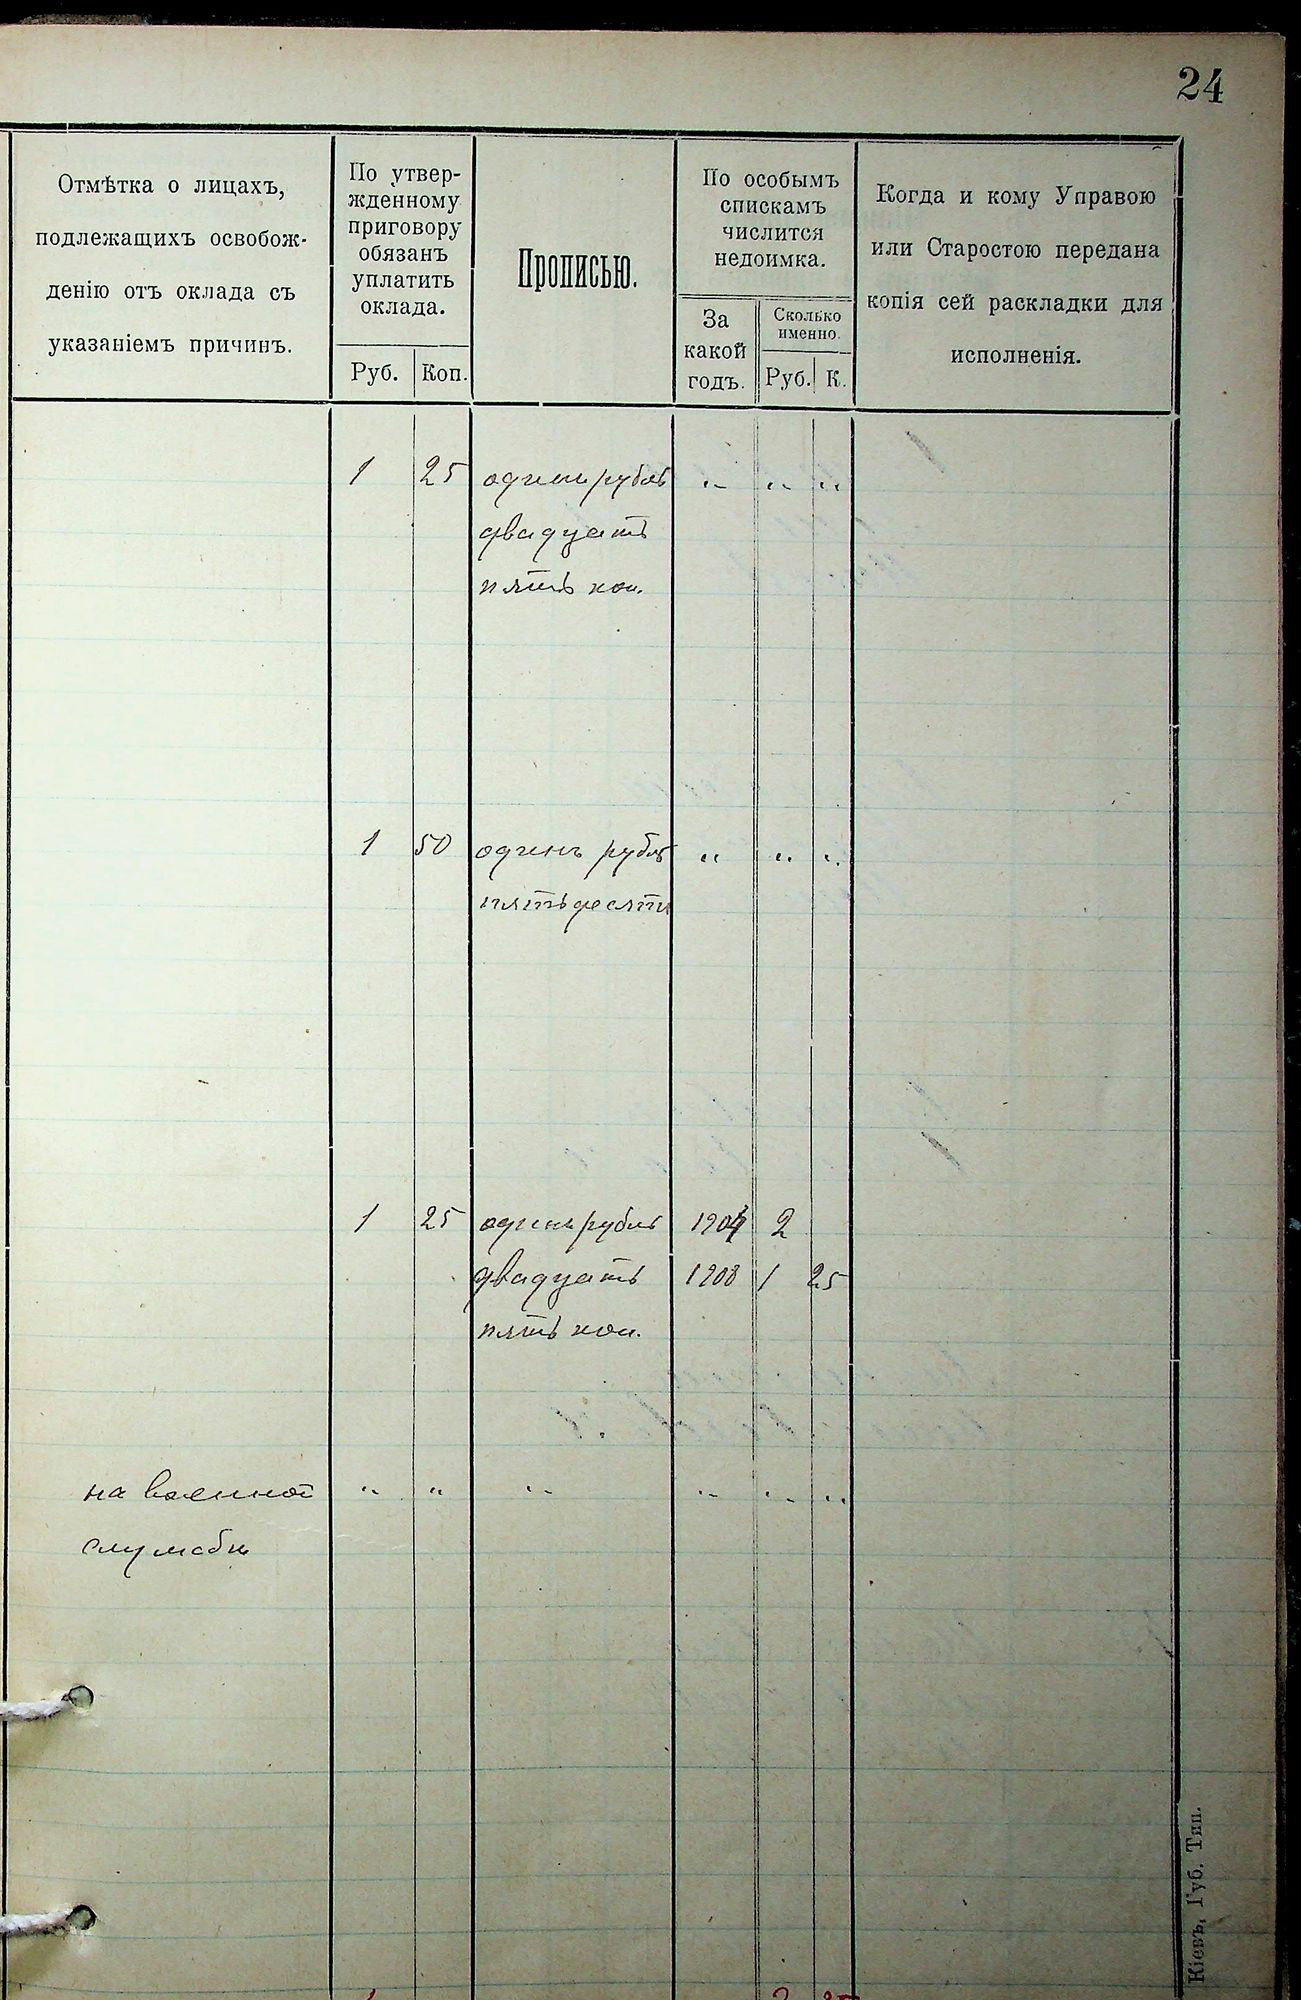 24
Отмѣтка о лицахъ,
подлежащихъ освобож-
денію отъ оклада съ
указаніемъ причинъ.
По утвер-
жденному
приговору
обязанъ
уплатить
оклада.
Руб. Коп.
Прописью.
По особымъ
спискамъ
числится
недоимка.
За
какой
годъ.
Сколько
именно.
Руб. К.
Когда и кому Управою
или Старостою передана
копія сей раскладки для
исполненія.
1 25 одинъ рубль " " "
двадцать
пять коп.
1 50 одинъ рубль " " "
пятьдесять
1 25 одинъ рубль 2
двадцать 1908 1 25
пять коп.
на военной " " " " " "
службе
Кіевъ, Губ. Тип.